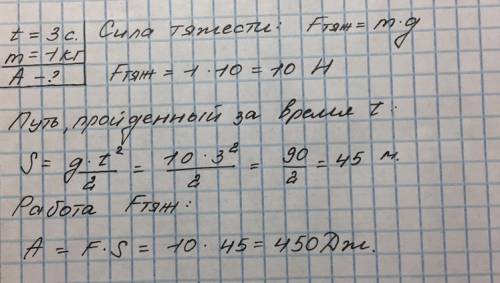 t = 3 с.
m = 1 кг
A - ?
Сила тяжести: Fтяж = m · g
Fтяж = 1 · 10 = 10 Н
Путь, пройденный за время t:
S = g · t²/2 = 10 · 3²/2 = 90/2 = 45 м.
Работа Fтяж:
A = F · S = 10 · 45 = 450 Дж.